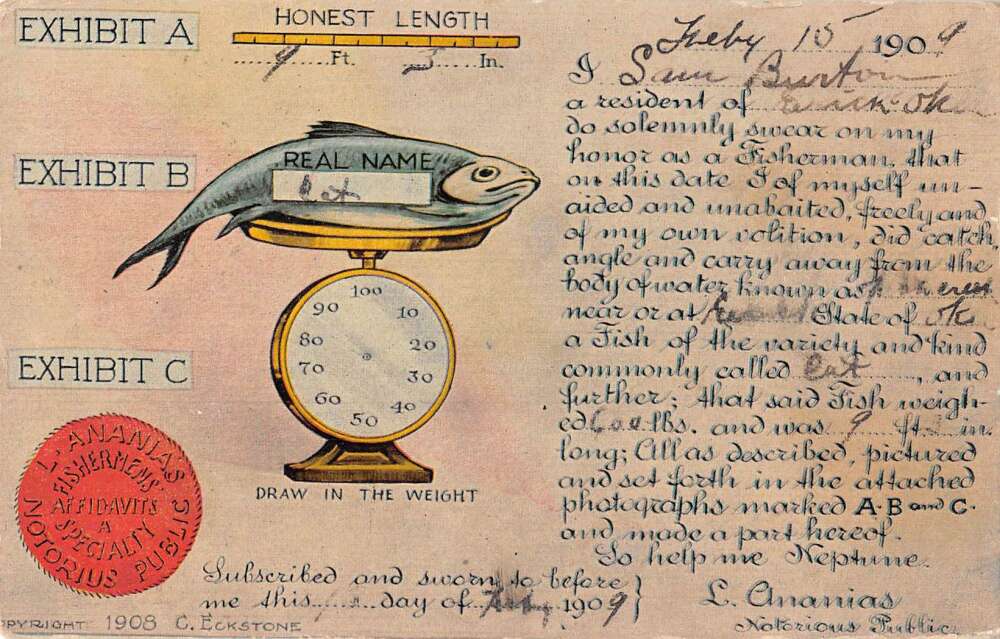 EXHIBIT A
HONEST LENGTH
9 Ft. 3 In.
EXHIBIT B
REAL NAME
Cat
100
90 10
80 20
70 30
60 40
50
DRAW IN THE WEIGHT
EXHIBIT C
L. ANANIAS
NOTORIUS PUBLIC
FISHERMENS'
AFFIDAVITS
A
SPECIALTY
Feby 15 1909
I Sam Burton
a resident of Ok
do solemnly swear on my
honor as a Fisherman, that
on this date I of myself un-
aided and unabaited, freely and
of my own volition, did catch,
angle and carry away from the
body of water known as
near or at State of Ok
a Fish of the variety and kind
commonly called Cat, and
further; that said Fish weigh-
ed 600 lbs. and was 9 ft 3 in.
long; All as described, pictured
and set forth in the attached
photographs marked A-B and C.
and made a part hereof.
So help me Neptune.
Subscribed and sworn to before
me this day of Feby 1909
L. Ananias
Notorious Public
COPYRIGHT 1908 C. ECKSTONE